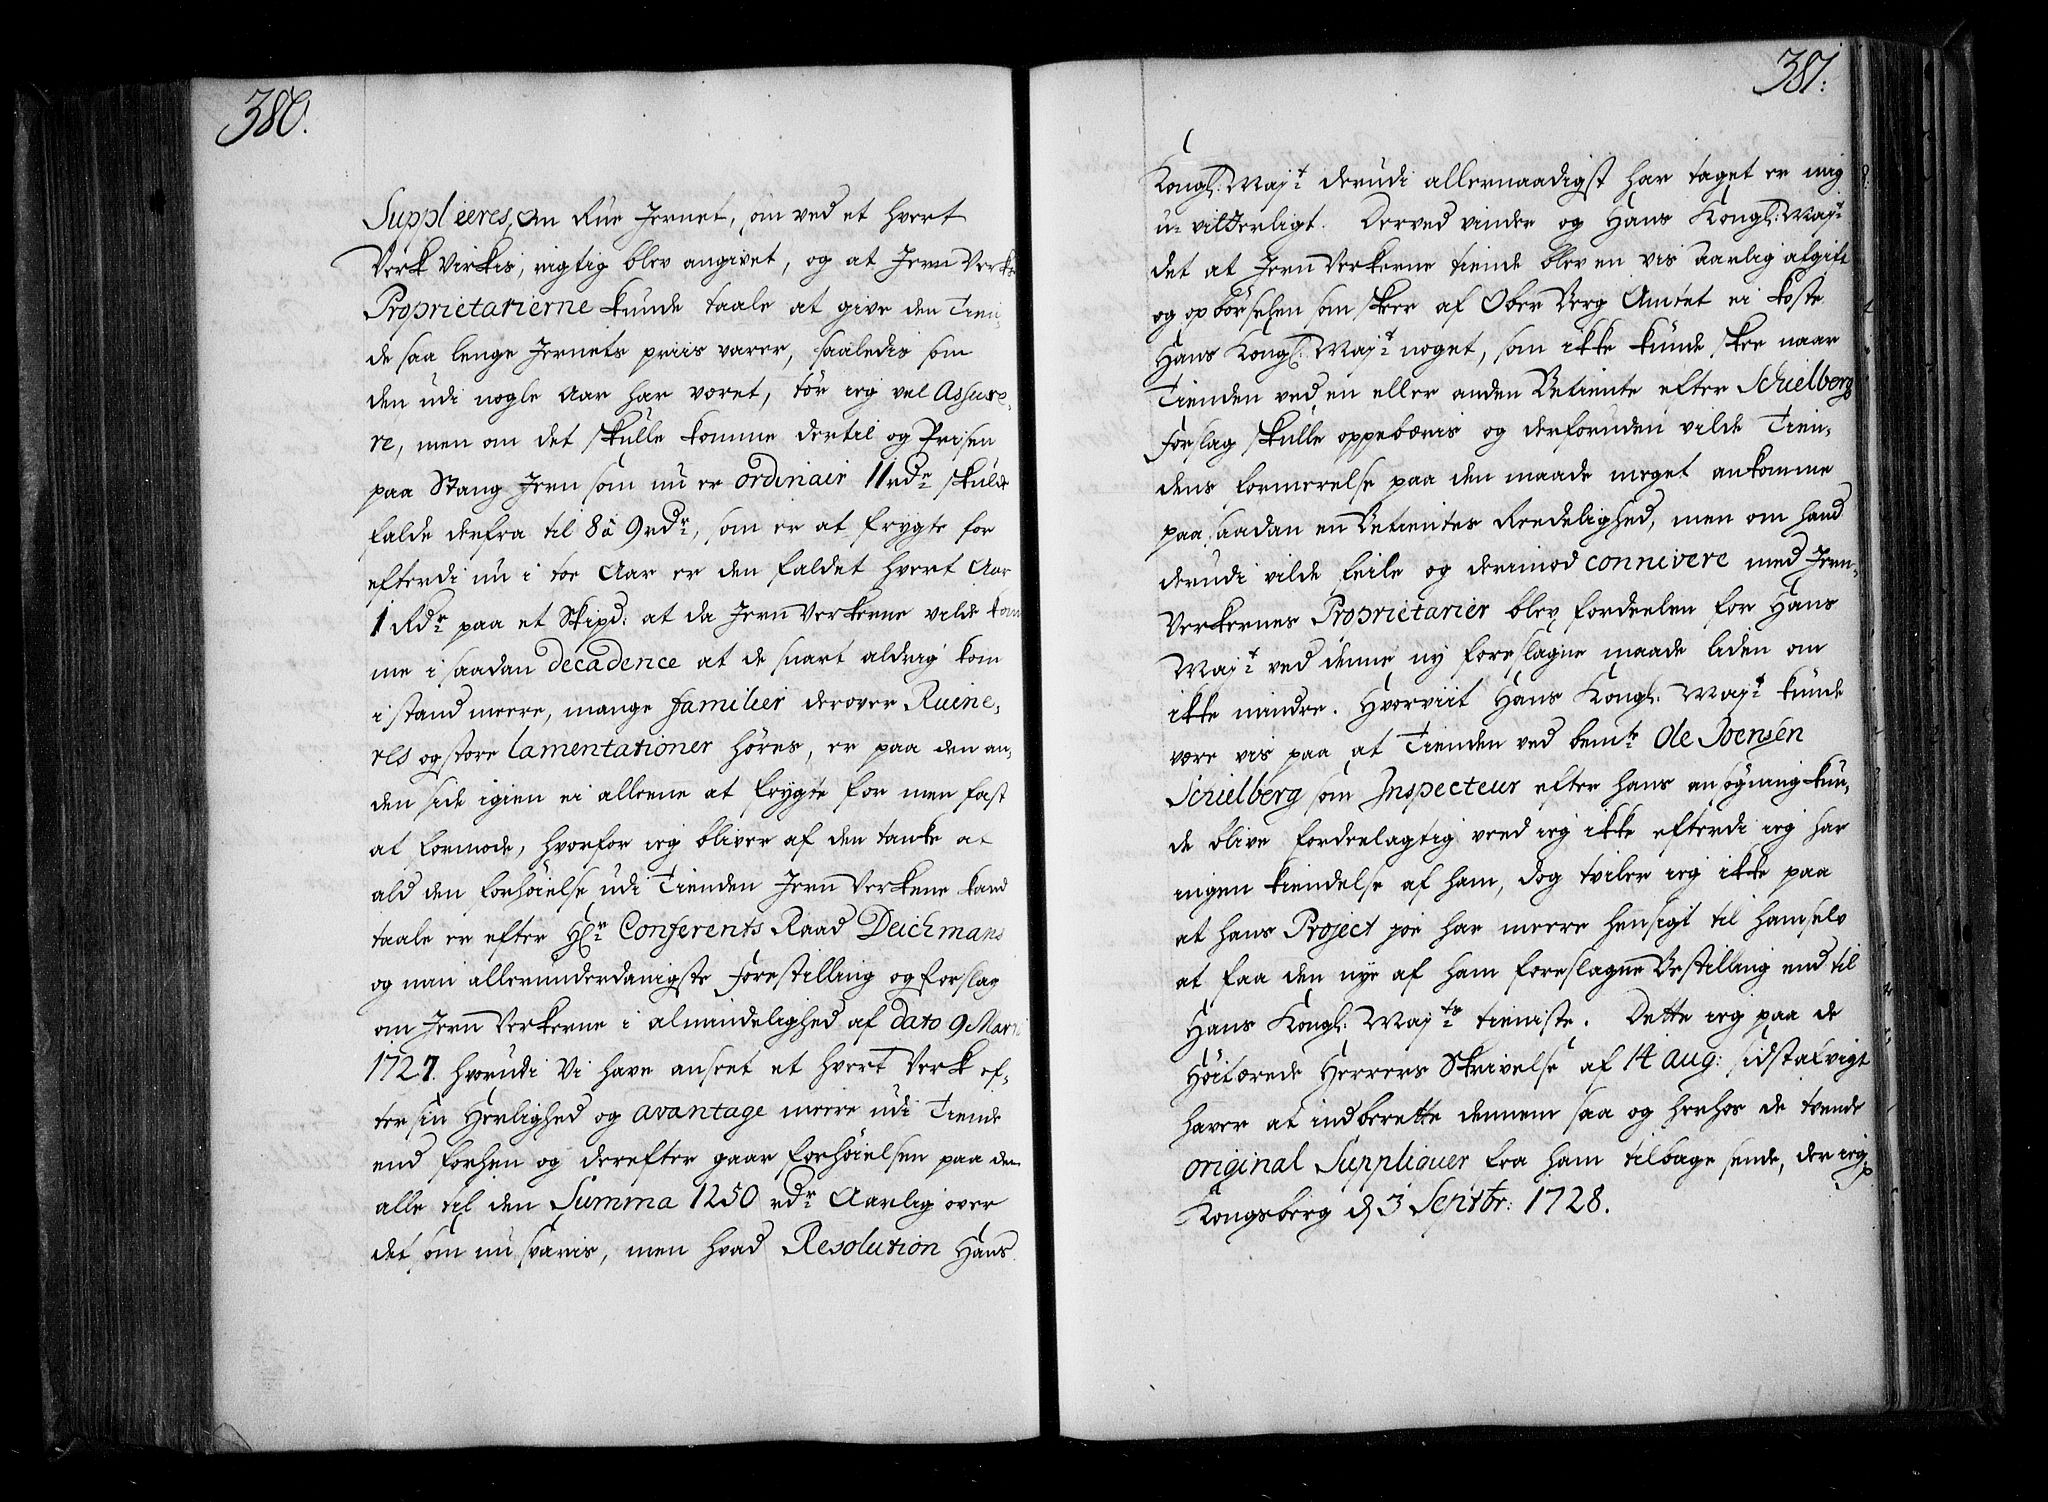 380.
Supplieres, om Rue Jernet, om ved et hvert
Verk Virkis, rigtig blev angivet, og at Jern Verks
Proprietarierne kunde taale at give den Tien-
de saa lenge Jernets priis varer, saaledis som
den udi nogle Aar har været, tør ieg vel Assure-
re, men om det skulle komme dertil og Prisen
paa Stang Jern som nu er ordinair 11 rdr skulde
falde derfra til 8 à 9 rdr, som er at frygte for
efterdi nu i toe Aar er den faldet hvert Aar
1 Rdr paa et Skipd: at da Jern Verkerne vilde kom
me i saadan decadence at de snart aldrig kom
i stand meere, mange familier derover Ruine-
res og store lamentationer høres, er paa den an-
den side igien ei alleene at frygte for men fast
at formode, hvorfor ieg bliver af den tanke at
ald den forhøielse udi Tienden Jern Verkene kand
taale er efter Hr Conferents Raad Deichmans
og min allerunderdanigste Forestilling og forslag
om Jern Verkerne i almindelighed af dato 9 Marti
1727. hvorudi Vi have anseet et hvert Verk ef-
ter sin Herlighed og avantage meere udi Tiende
end forhen og derefter gaar forhøielsen paa dem
alle til den Summa 1250 rdr Aarlig over
det som nu svaris, men hvad Resolution Hans
381.
Kongl: Majt derudi allernaadigst har taget er mig
u-vitterligt. Derved vinder og Hans Kongl: Majt
det at Jern Verkerne tiende blev en vis Aarlig afgift
og opbørselen som skeer af Ober Berg Amtet ei koste
Hans Kongl: Majt noget, som ikke kunde skee naar
Tienden ved en eller anden Betiente efter Schielberg
Forslag skulle oppebæris og derforuden vilde Tien-
dens formerelse paa den maade meget ankomme
paa saadan en Betientes Reedelighed, men om hand
derudi vilde feile og derimod connivere med Jern-
Verkernes Proprietarier blev fordeelen for Hans
Majt ved denne ny foreslagne maade liden om
ikke mindre. Hvorviit Hans Kongl: Majt kunde
være vis paa at Tienden ved bemte Ole Joensen
Schielberg som Inspecteur efter hans ansøgning kun-
de blive fordeelagtig veed ieg ikke efterdi ieg har
ingen kiendelse af ham, dog tviler ieg ikke paa
at hans Project jo har meere hensigt til hamselv
at faa den nye af ham foreslagne Bestilling end til
Hans Kongl: Majts tieniste. Dette ieg paa de
Høitærede Herrers Skrivelse af 14 aug: sidstafvigt
haver at indberette dennem saa og herhos de tvende
original Suppliquer fra ham tilbage sende, der ieg
Kongsberg d 3 Septbr: 1728.